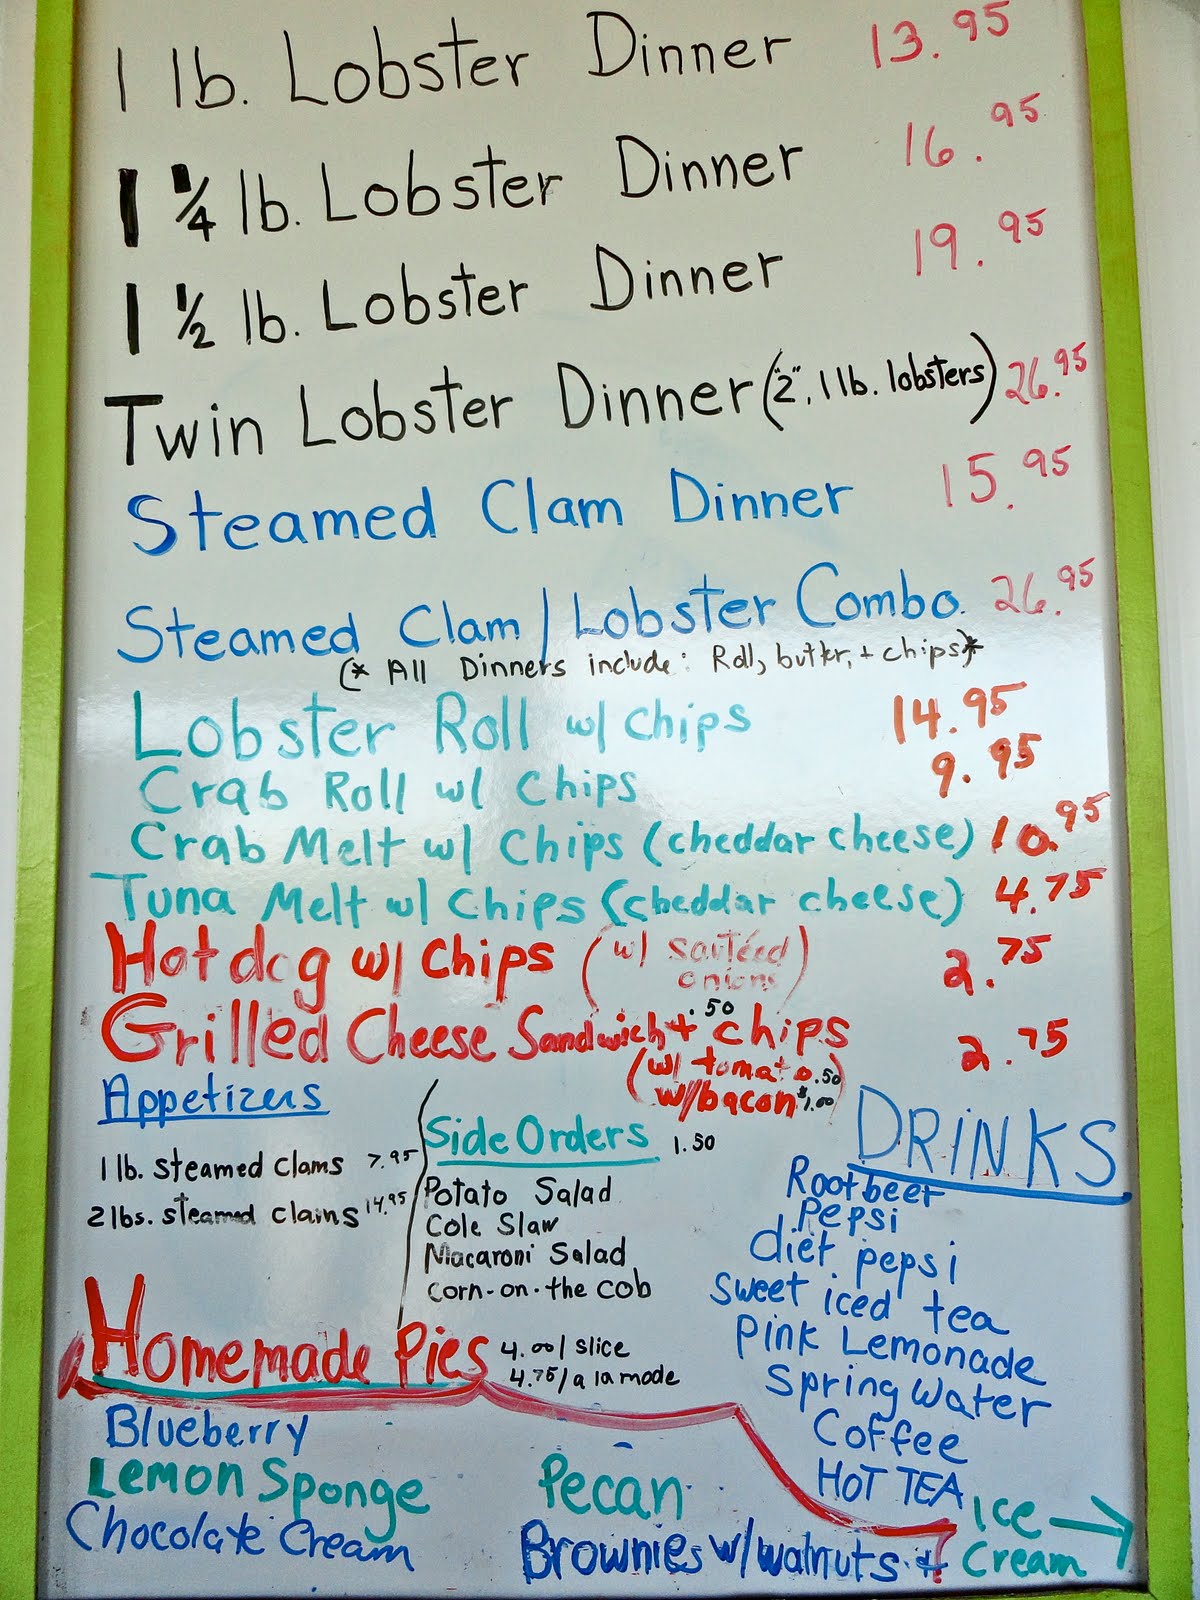 1 lb. Lobster Dinner 13.95
1 1/4 lb. Lobster Dinner 16.95
1 1/2 lb. Lobster Dinner 19.95
Twin Lobster Dinner ("2", 1 lb. lobsters) 26.95
Steamed Clam Dinner 15.95
Steamed Clam / Lobster Combo. 26.95
(* All Dinners include: Roll, butter, + chips)*
Lobster Roll w/ chips 14.95
Crab Roll w/ chips 9.95
Crab Melt w/ chips (cheddar cheese) 10.95
Tuna Melt w/ chips (cheddar cheese) 4.75
Hot dog w/ chips (w/ sautéed 2.75
onions)
.50
Grilled Cheese Sandwich + chips 2.75
(w/ tomato .50)
w/bacon $1.00
Appetizers
1 lb. steamed clams 7.95
2 lbs. steamed clams 14.95
Side Orders 1.50
Potato Salad
Cole Slaw
Macaroni Salad
corn-on-the cob
DRiNKS
Rootbeer
Pepsi
diet pepsi
sweet iced tea
Pink Lemonade
Spring Water
Coffee
HOT TEA
Homemade Pies 4.00 / slice
4.75 / a la mode
Blueberry
Lemon Sponge
Chocolate Cream
Pecan
Brownies w/walnuts
Ice
Cream